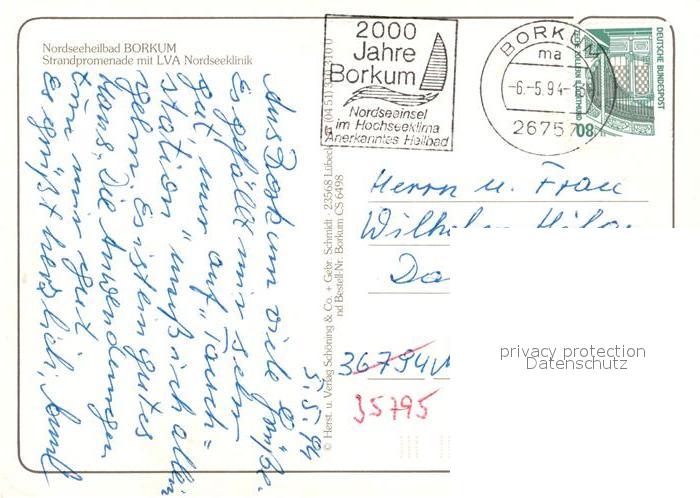 Nordseeheilbad BORKUM
Strandpromenade mit LVA Nordseeklinik
2000
Jahre
Borkum
Nordseeinsel
im Hochseeklima
Anerkanntes Heilbad
BORKUM
ma
-6.-5.94-
26757
DEUTSCHE BUNDESPOST
80
5.5.94
Aus Borkum viele Grüße.
Es gefällt mir sehr
gut, nur auf "Tauch=
station" muß ich allein
gehn. Es ist ein gutes
Haus. Die Anwendungen
tun mir gut
Es grüßt herzlich,
© Herst. u. Verlag Schöning & Co. + Gebr. Schmidt · 23568 Lübeck
nd Bestell-Nr. Borkum CS 6498
Herrn u. Frau
Wilhelm
36794
35795
privacy protection
Datenschutz